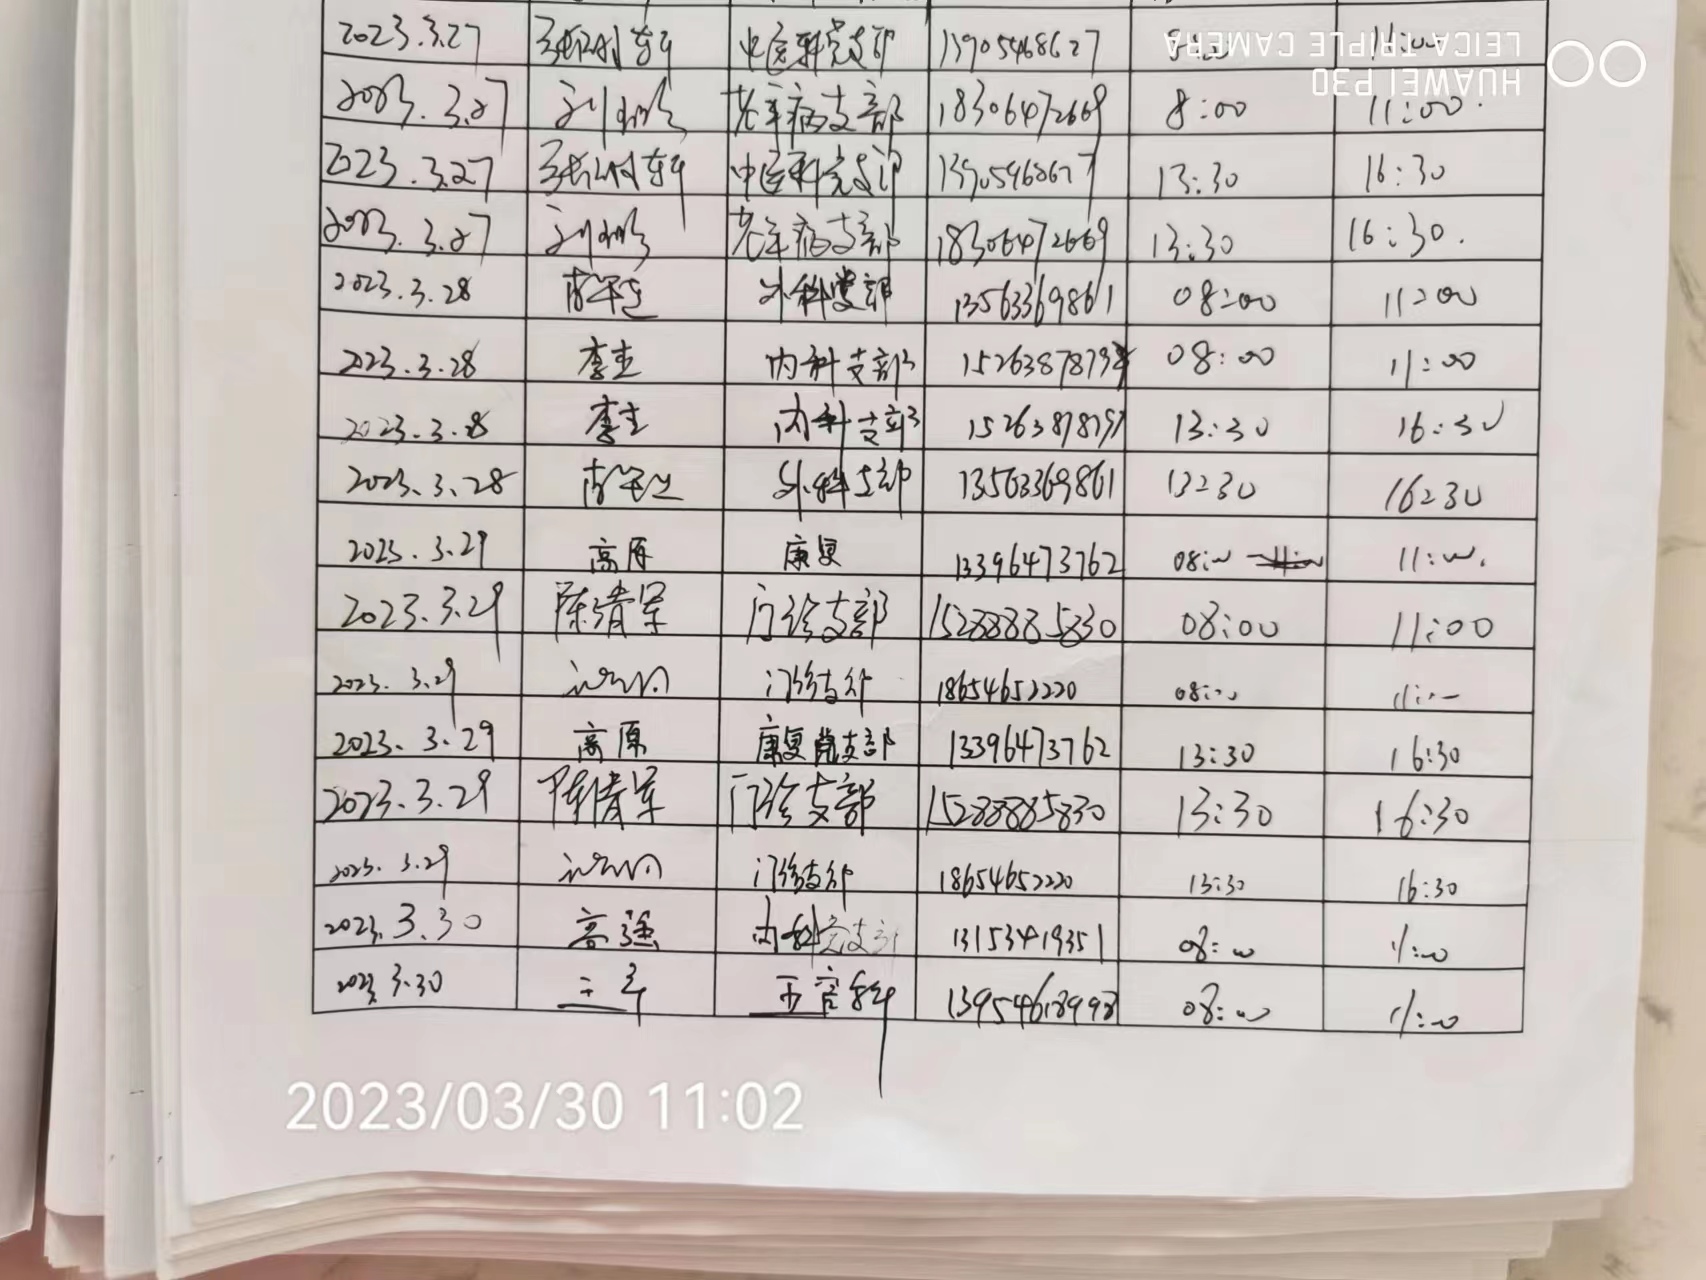 2023.3.27 中医科党支部 13905468627 11:00
HUAWEI P30
LEICA TRIPLE CAMERA
2023.3.27 老年病支部 18306472669 8:00 11:00.
2023.3.27 中医科党支部 13:30 16:30
2023.3.27 老年病支部 18306472669 13:30 16:30.
2023.3.28 外科党支部 13563369861 08:00 11:00
2023.3.28 李圭 内科支部 08:00 11:00
2023.3.28 李圭 内科支部 13:30 16:30
2023.3.28 外科支部 13563369861 13:30 16:30
2023.3.29 高原 康复 13396473762 08:00 11:00.
2023.3.29 陈清军 门诊支部 15288885830 08:00 11:00
2023.3.29 门诊支部 18654652220 08:00 11:00
2023.3.29 高原 康复党支部 13396473762 13:30 16:30
2023.3.29 陈清军 门诊支部 15288885830 13:30 16:30
2023.3.29 门诊支部 18654652220 13:30 16:30
2023.3.30 高强 内科党支部 13153419351 08:00 11:00
2023.3.30 五官科 08:00 11:00
2023/03/30 11:02